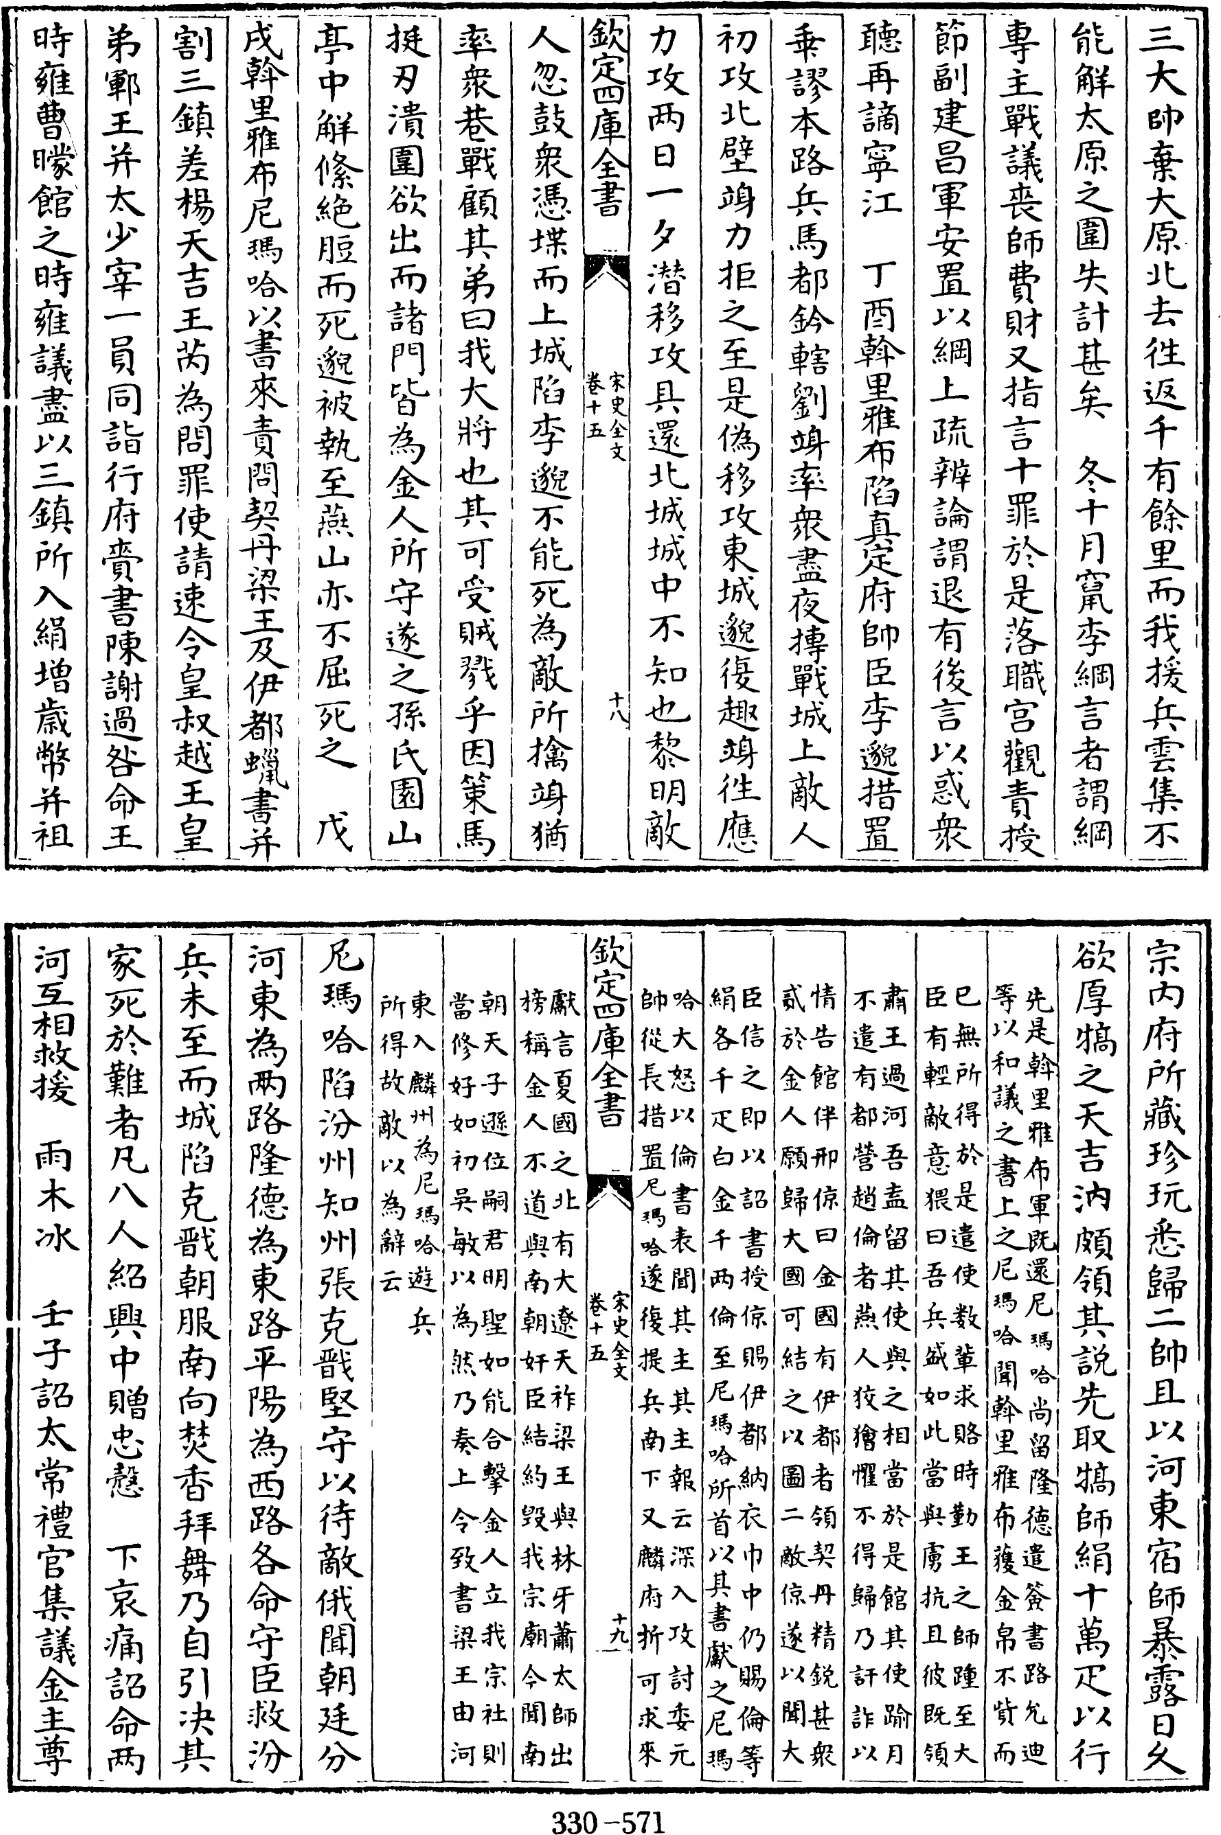 三大帥棄大原北去徃返千有餘里而我援兵雲集不
能解太原之圍失計甚矣　冬十月竄李綱言者謂綱
專主戰議喪師費財又指言十罪於是落職宫觀責授
節副建昌軍安置以綱上疏辨論謂退有後言以惑衆
聽再謫寧江　丁酉斡里雅布陷真定府帥臣李邈措置
乗謬本路兵馬都鈐轄劉竧率衆盡夜搏戰城上敵人
初攻北壁竧力拒之至是偽移攻東城邈復趣竧徃應
力攻兩日一夕潜移攻具還北城城中不知也黎明敵
欽定四庫全書
宋史全文
卷十五
十八
人忽鼓衆憑堞而上城陷李邈不能死為敵所擒竧猶
率衆巷戰顧其弟曰我大將也其可受賊戮乎因策馬
挺刃潰圍欲出而諸門皆為金人所守遂之孫氏園山
亭中解絛絶脰而死邈被執至燕山亦不屈死之　戊
戌斡里雅布尼瑪哈以書來責問契丹梁王及伊都蠟書并
割三鎮差楊天吉王芮為問罪使請速令皇叔越王皇
弟鄆王并太少宰一員同詣行府賫書陳謝過咎命王
時雍曹曚館之時雍議盡以三鎮所入絹增歲幣并祖
宗内府所藏珍玩悉歸二帥且以河東宿師暴露日久
欲厚犒之天吉汭頗領其説先取犒師絹十萬疋以行
先是斡里雅布軍既還尼瑪哈尚留隆德遣簽書路允迪
等以和議之書上之尼瑪哈聞斡里雅布獲金帛不貲而
已無所得於是遣使數輩求賂時勤王之師踵至大
臣有輕敵意猥曰吾兵盛如此當與虜抗且彼既領
肅王過河吾盍留其使與之相當於是館其使踰月
不遣有都營趙倫者燕人狡獪懼不得歸乃訐詐以
情告館伴邢倞曰金國有伊都者領契丹精鋭甚衆
貳於金人願歸大國可結之以圖二敵倞遂以聞大
臣信之即以詔書授倞賜伊都納衣巾中仍賜倫等
絹各千疋白金千兩倫至尼瑪哈所首以其書獻之尼瑪
哈大怒以倫書表聞其主其主報云深入攻討委元
帥從長措置尼瑪哈遂復提兵南下又麟府折可求來
欽定四庫全書
宋史全文
卷十五
十九
獻言夏國之北有大遼天祚梁王與林牙蕭太師出
榜稱金人不道與南朝奸臣結約毁我宗廟今聞南
朝天子遜位嗣君明聖如能合擊金人立我宗社則
當修好如初吳敏以為然乃奏上令致書梁王由河
東入麟州為尼瑪哈遊兵
所得故敵以為辭云
尼瑪哈陷汾州知州張克戩堅守以待敵俄聞朝廷分
河東為兩路隆德為東路平陽為西路各命守臣救汾
兵未至而城陷克戩朝服南向焚香拜舞乃自引决其
家死於難者凡八人紹興中贈忠慤　下哀痛詔命兩
河互相救援　雨木冰　壬子詔太常禮官集議金主尊
330-571